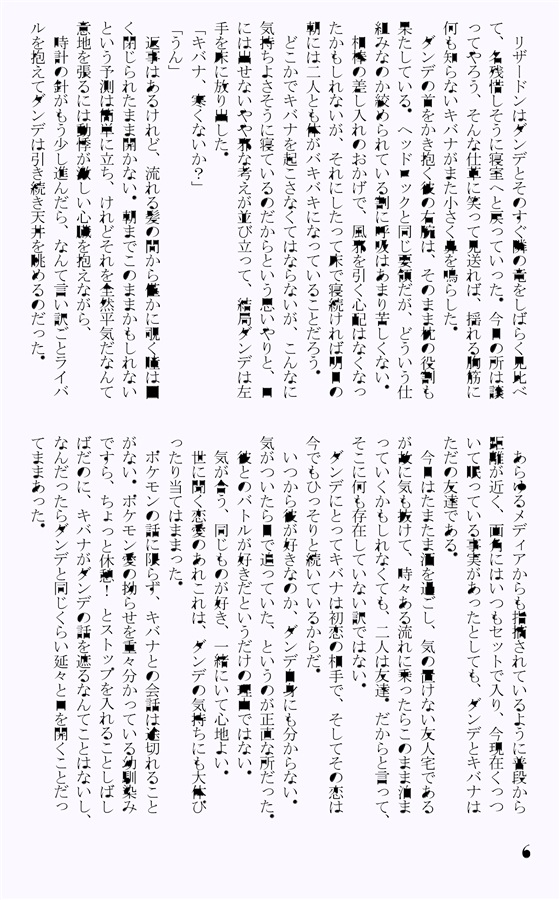 リザードンはダンデとそのすぐ隣の竜をしばらく見比べ
て、名残惜しそうに寝室へと戻っていった。今日の所は譲
ってやろう、そんな仕草に笑って見送れば、揺れる胸筋に
何も知らないキバナがまた小さく鼻を鳴らした。
ダンデの首をかき抱く彼の右腕は、そのまま枕の役割も
果たしている。ヘッドロックと同じ要領だが、どういう仕
組みなのか絞められている割に呼吸はあまり苦しくない。
相棒の差し入れのおかげで、風邪を引く心配はなくなっ
たかもしれないが、それにしたって床で寝続ければ明日の
朝には二人とも体がバキバキになっていることだろう。
どこかでキバナを起こさなくてはならないが、こんなに
気持ちよさそうに寝ているのだからという思いやりと、口
には出せないやや邪な考えが並び立って、結局ダンデは左
手を床に放り出した。
「キバナ、寒くないか？」
「うん」
返事はあるけれど、流れる髪の間から僅かに覗く瞳は固
く閉じられたまま開かない。朝までこのままかもしれない
という予測は簡単に立ち、けれどそれを全然平気だなんて
意地を張るには動悸が激しい心臓を抱えながら、
時計の針がもう少し進んだら、なんて言い訳ごとライバ
ルを抱えてダンデは引き続き天井を眺めるのだった。
あらゆるメディアからも指摘されているように普段から
距離が近く、画角にはいつもセットで入り、今現在くっつ
いて眠っている事実があったとしても、ダンデとキバナは
ただの友達である。
今日はたまたま酒を過ごし、気の置けない友人宅である
が故に気も抜けて、時々ある流れに乗ったらこのまま泊ま
っていくかもしれなくても、二人は友達。だからと言って、
そこに何も存在していない訳ではない。
ダンデにとってキバナは初恋の相手で、そしてその恋は
今でもひっそりと続いているからだ。
いつから彼が好きなのか、ダンデ自身にも分からない。
気がついたら目で追っていた、というのが正直な所だった。
彼とのバトルが好きだというだけの理由ではない。
気が合う、同じものが好き、一緒にいて心地よい。
世に聞く恋愛のあれこれは、ダンデの気持ちにも大体ぴ
ったり当てはまった。
ポケモンの話に限らず、キバナとの会話は途切れること
がない。ポケモン愛の拗らせを重々分かっている幼馴染み
ですら、ちょっと休憩！とストップを入れることしばし
ばだのに、キバナがダンデの話を遮るなんてことはないし、
なんだったらダンデと同じくらい延々と口を開くことだっ
てままあった。
6